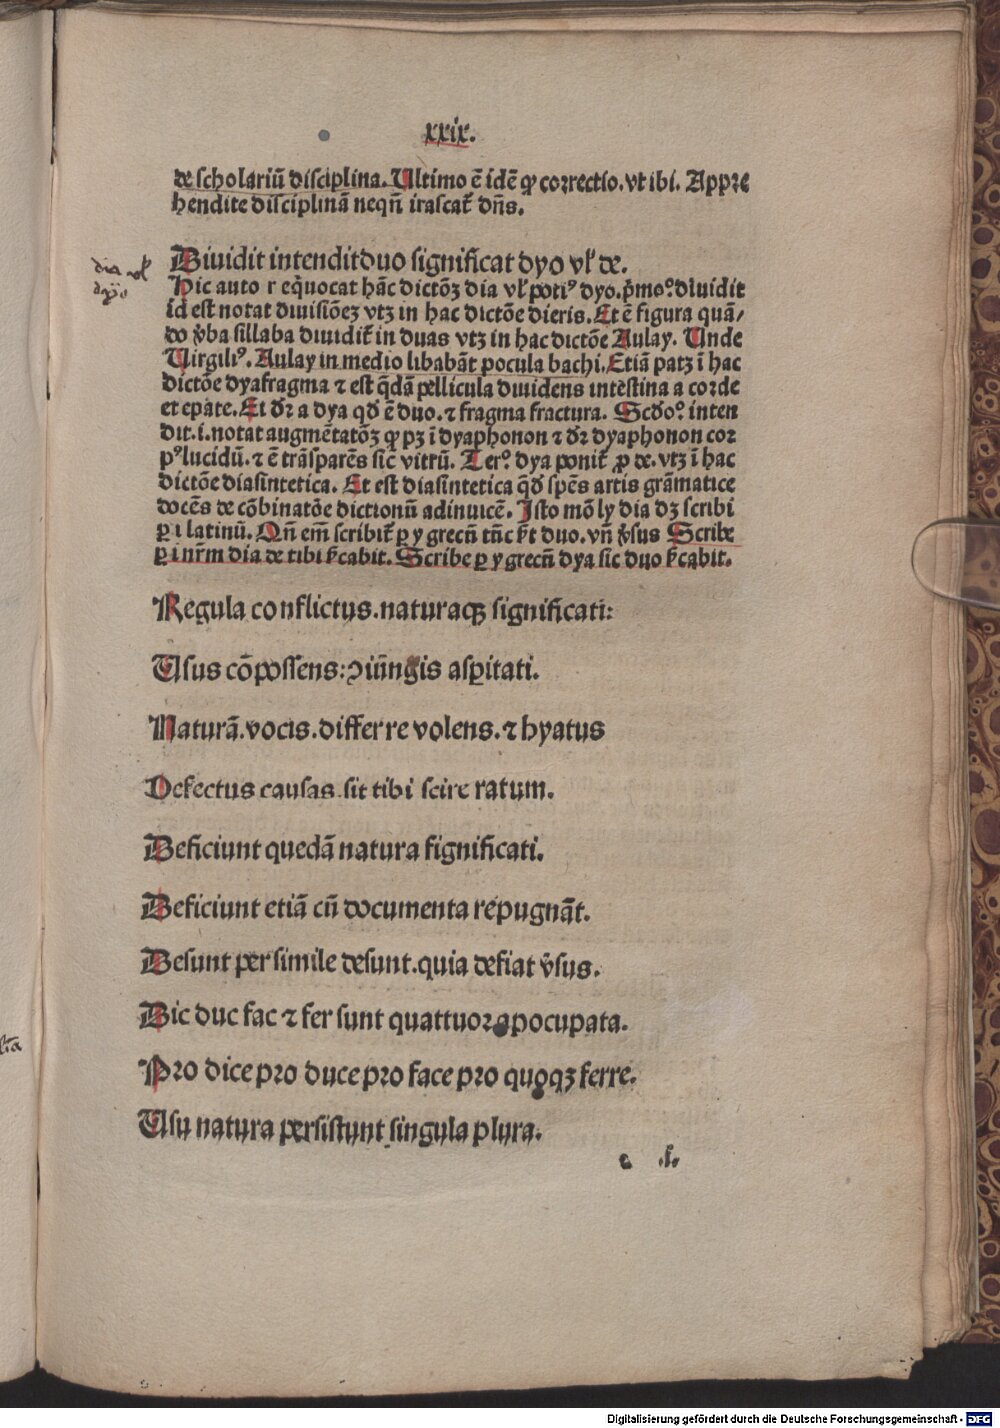 xxix.
de scholariū disciplina. Ultimo ē idē qꝫ correctio. vt ibi. Appre
hendite disciplinā neqñ irascat᷑ dn̄s.
dia vl᷑
dyo
Diuidit intendit duo significat dyo vl᷑ de.
Hic auto r eq̄uocat hāc dictōꝫ dia vl᷑ potiꝰ dyo. p̄moꝰ. diuidit
id est notat diuisiōeꝫ vtꝫ in hac dictōe dieris. Et ē figura quā/
do v̄ba sillaba diuidit᷑ in duas vtꝫ in hac dictōe Aulay. Unde
Virgiliꝰ. Aulay in medio libabāt pocula bachi. Etiā patꝫ ī hac
dictōe dyafragma ⁊ est q̄dā pellicula diuidens intestina a corde
et epate. Et dr̄ a dya qd̄ ē duo. ⁊ fragma fractura. Scd̄oꝰ. inten
dit. i. notat augmētatōꝫ qꝫ pꝫ ī dyaphonon ⁊ dr̄ dyaphonon cor
pꝰ lucidū. ⁊ ē trāsparēs sic̄ vitrū. Terꝰ. dya ponit᷑ ꝓ de. vtꝫ ī hac
dictōe diasintetica. Et est diasintetica qd̄ spēs artis grāmatice
docēs de cōbinatōe dictionū adinuicē. Isto mō ly dia dꝫ scribi
ꝑ i latinū. Qn̄ em̄ scribit᷑ ꝑ y grecū tūc st̄ duo. vn̄ v̄sus Scribe
ꝑ i nr̄m dia de tibi sc̄abit. Scribe ꝑ y grecū dya sic duo sc̄abit.
Regula conflictus. naturaqꝫ significati:
Usus cōpossens: ꝯiūngis asꝑitati.
Naturā. vocis. differre volens. ⁊ hyatus
Defectus causas sit tibi scire ratum.
Deficiunt quedā natura significati.
Deficiunt etiā cū documenta repugnāt.
Desunt per simile desunt. quia defiat v̄sus.
Dic duc fac ⁊ fer sunt quattuor apocupata.
Pro dice pro duce pro face pro quoqꝫ ferre.
Usu natura persistunt singula plura.
e .f.
Digitalisierung gefördert durch die Deutsche Forschungsgemeinschaft - DFG